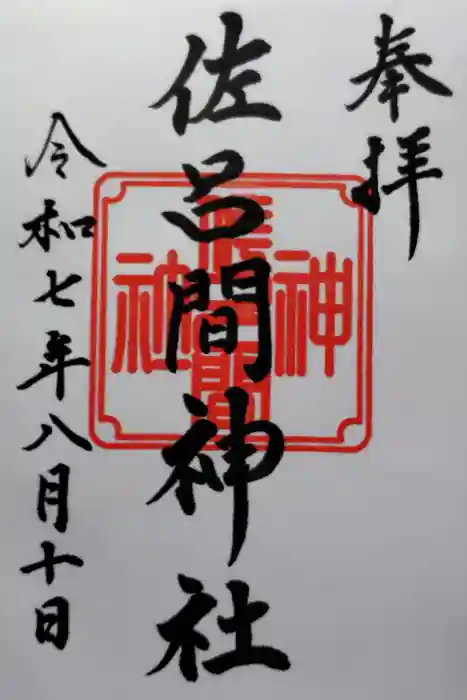 奉拝
佐呂間神社
令和七年八月十日
神
社